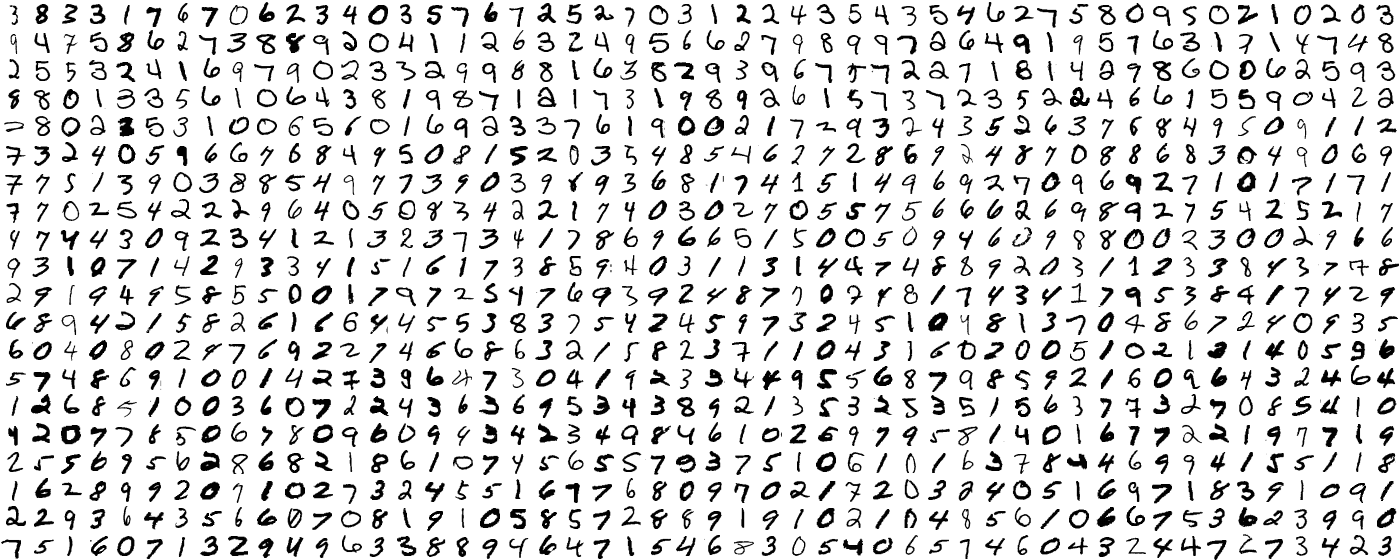 3 8 3 3 1 7 6 7 0 6 2 3 4 0 3 5 7 6 7 2 5 2 7 0 3 1 2 2 4 3 5 4 3 5 4 6 2 7 5 8 0 9 5 0 2 1 0 2 0 3
9 4 7 5 8 6 2 7 3 8 8 9 2 0 4 1 1 2 6 3 2 4 9 5 6 6 2 7 9 8 9 9 7 2 6 4 9 1 9 5 7 6 3 1 7 1 4 7 4 8
2 5 5 3 2 4 1 6 9 7 9 0 2 3 3 2 9 9 8 8 1 6 3 8 2 9 3 9 6 7 5 7 2 2 7 1 8 1 4 2 9 8 6 0 0 6 2 5 9 3
8 8 0 1 3 3 5 6 1 0 6 4 3 8 1 9 8 7 1 2 1 7 3 1 9 8 9 2 6 1 5 7 3 7 2 3 5 2 2 4 6 6 1 5 5 9 0 4 2 2
8 0 2 3 5 3 1 0 0 6 5 6 0 1 6 9 2 3 3 7 6 1 9 0 0 2 1 7 2 9 3 2 4 3 5 2 6 3 7 6 8 4 9 5 0 9 1 1 2
7 3 2 4 0 5 9 6 6 7 6 8 4 9 5 0 8 1 5 2 0 3 5 4 8 5 4 6 2 7 2 8 6 9 2 4 8 7 0 8 8 6 8 3 0 4 9 0 6 9
7 7 5 1 3 9 0 3 8 8 5 4 9 7 7 3 9 0 3 9 8 9 3 6 8 1 7 4 1 5 1 4 9 6 9 2 7 0 9 6 9 2 7 1 0 1 7 1 7 1
7 7 0 2 5 4 2 2 2 9 6 4 0 5 0 8 3 4 2 2 1 7 4 0 3 0 2 7 0 5 5 5 7 5 6 6 6 2 6 9 8 9 2 7 5 4 2 5 2 1 7
4 7 4 4 3 0 9 2 3 4 1 2 1 3 2 3 7 3 4 1 7 8 6 9 6 6 5 1 5 0 0 5 0 9 4 6 0 9 8 8 0 0 2 3 0 0 2 9 6 6
9 3 1 0 7 1 4 2 9 3 3 4 1 5 1 6 1 7 3 8 5 9 4 0 3 1 1 3 1 4 4 7 4 8 8 9 2 0 3 1 1 2 3 3 8 4 3 7 8
2 9 1 9 4 9 5 8 5 5 0 0 1 7 9 7 2 5 4 7 6 9 3 9 2 4 8 7 7 0 7 4 8 1 7 4 3 4 1 7 9 5 3 8 4 1 7 4 2 9
6 8 9 4 2 1 5 8 2 6 1 6 6 4 4 5 5 3 8 3 7 5 4 2 4 5 9 7 3 2 4 5 1 0 9 8 1 3 7 0 4 8 6 7 2 4 0 9 3 5
6 0 4 0 8 0 2 4 7 6 9 2 2 7 4 6 6 8 6 3 2 1 5 8 2 3 7 1 1 0 4 3 3 6 0 2 0 0 5 1 0 2 1 2 1 4 0 5 9 6
5 7 4 8 6 9 1 0 0 1 4 2 7 3 9 6 4 7 3 0 4 1 9 2 3 3 4 4 9 5 5 6 8 7 9 8 5 9 2 1 6 0 9 6 4 3 2 4 6 4
1 2 6 8 5 1 0 0 3 6 0 7 2 2 4 3 6 3 6 9 5 3 4 3 8 9 2 1 3 5 3 2 5 3 5 1 5 6 3 7 7 3 2 7 0 8 5 4 1 0
4 2 0 7 7 8 5 0 6 7 8 0 9 6 0 9 4 3 4 2 3 4 9 8 8 4 6 1 0 2 6 9 7 9 5 8 1 4 0 1 6 7 7 2 2 1 9 7 7 1 9
2 5 5 6 9 5 6 2 8 6 8 2 1 8 6 1 0 7 4 5 6 5 5 7 9 3 3 7 5 1 0 6 1 0 1 6 3 7 8 4 4 6 9 9 4 1 5 5 1 1 8
1 6 2 8 9 9 2 0 9 1 0 2 7 3 2 4 5 5 1 6 7 7 6 8 0 9 7 0 2 1 7 2 0 3 2 4 0 5 1 6 9 7 1 8 3 9 1 0 9 1
2 2 9 3 6 4 3 5 6 6 0 7 0 8 1 9 1 0 5 8 5 7 2 8 8 9 1 9 1 0 2 1 0 4 8 5 6 1 0 6 6 7 5 3 6 2 3 9 9 0
7 5 1 6 0 7 1 3 2 9 4 9 6 3 3 8 8 9 4 6 4 7 1 5 4 6 8 3 0 5 4 0 6 5 7 4 6 0 4 3 2 4 4 7 2 7 3 4 2 3